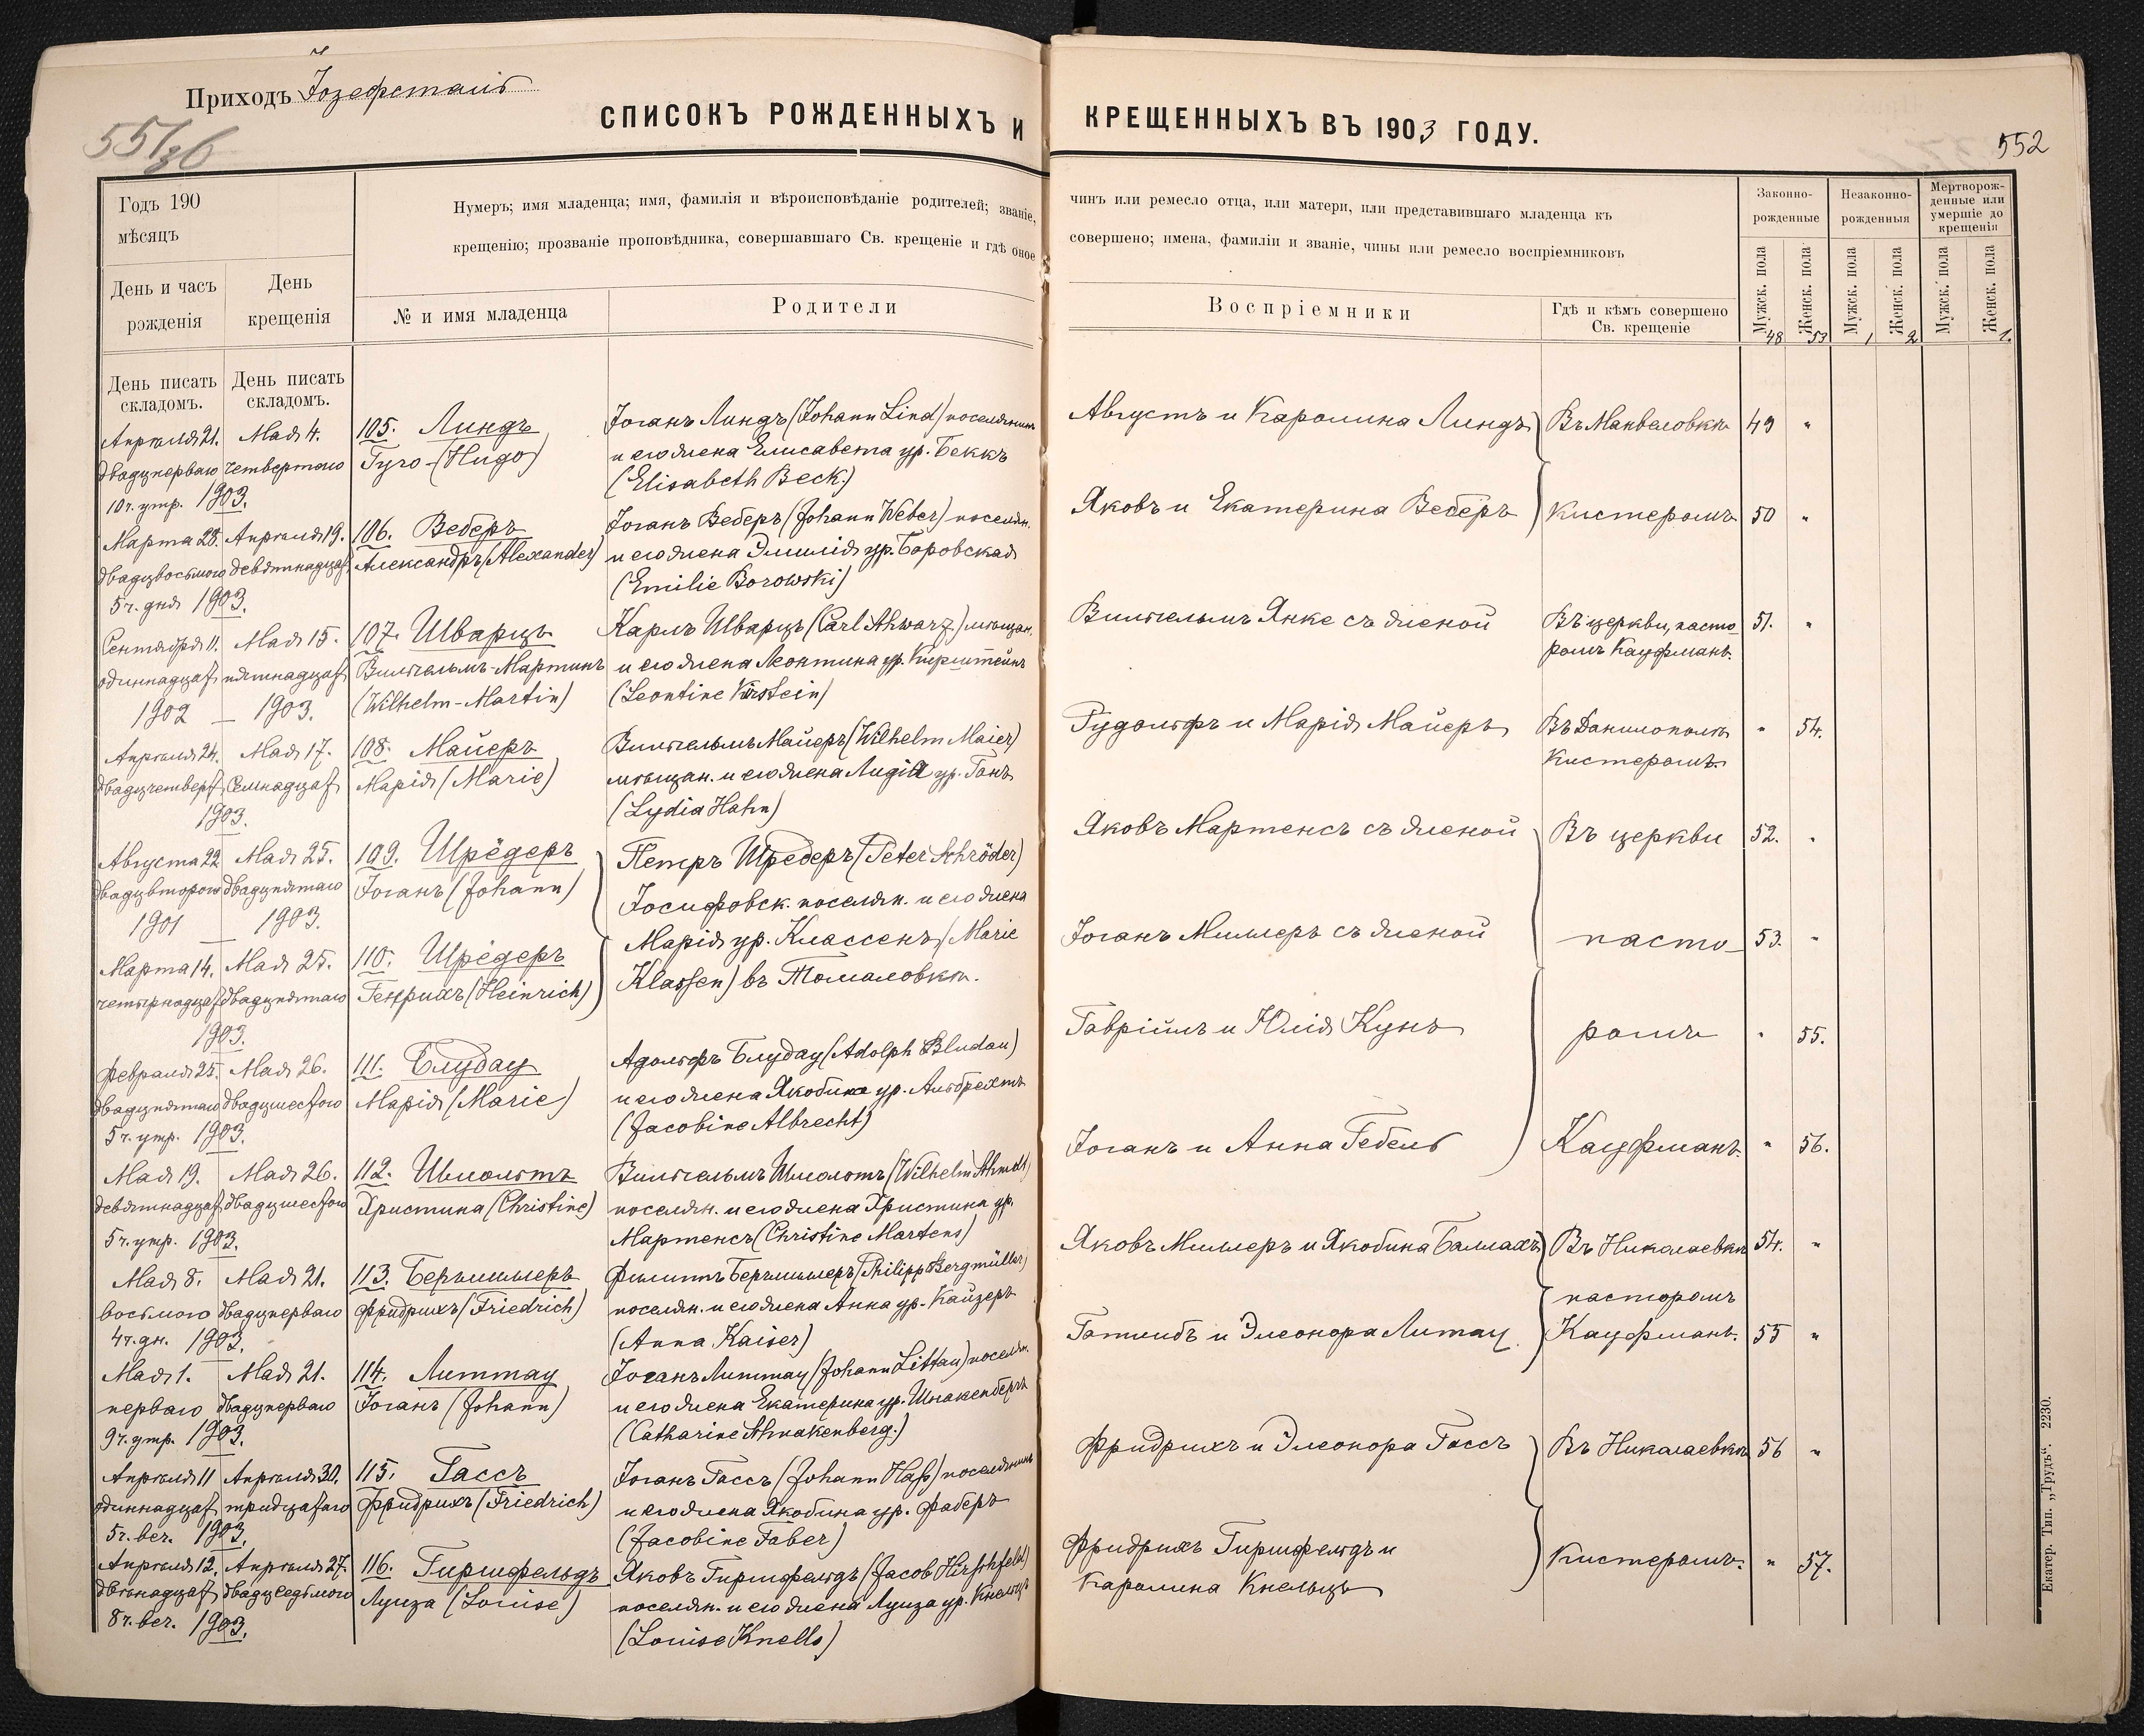 Приходъ Іозефсталь
551/36
СПИСОКЪ РОЖДЕННЫХЪ И КРЕЩЕННЫХЪ ВЪ 1903 ГОДУ.
552
Годъ 190
мѣсяцъ
День и часъ рожденія
День крещенія
Нумеръ; имя младенца; имя, фамилія и вѣроисповѣданіе родителей; званіе, чинъ или ремесло отца, или матери, или представившаго младенца къ
крещенію; прозваніе проповѣдника, совершавшаго Св. крещеніе и гдѣ оное совершено; имена, фамиліи и званіе, чины или ремесло воспріемниковъ
№ и имя младенца
Родители
Воспріемники
Гдѣ и кѣмъ совершено Св. крещеніе
Законно-рожденные
Незаконно-рожденныя
Мертворож-денные или умершіе до крещенія
Мужск. пола 48
Женск. пола 53
Мужск. пола 1
Женск. пола 2
Мужск. пола
Женск. пола 1.
День писать складомъ.
День писать складомъ.
Апрѣля 21. Мая 4. 105. Линдъ Іоганъ Линдъ (Johann Lind) поселянинъ Августъ и Каролина Линдъ Въ Манвеловкѣ 49 "
двадцперваго четвертаго Гуго-(Hugo) и его жена Елисавета ур. Беккъ
10 ч. утр. 1903. (Elisabeth Beck.)
Марта 28. Апрѣля 19. 106. Веберъ Іоганъ Веберъ (Johann Weber) поселян. Яковъ и Екатерина Веберъ Кистеромъ 50 "
двадцвосьмого девятнадцаt Александръ (Alexander) и его жена Эмилія ур. Боровская
5 ч. дня 1903. (Emilie Borowski)
Сентября 11. Мая 15. 107. Шварцъ Карлъ Шварцъ (Carl Schwarz) мѣщан. Вильгельмъ Янке съ женой Въ церкви, пасто- 51. "
одиннадцаt пятнадцаt Вильгельмъ-Мартинъ и его жена Леонтина ур. Кирштейнъ ромъ Кауфманъ.
1902 — 1903. (Wilhelm-Martin) (Leontine Kirstein)
Апрѣля 24. Мая 17. 108. Майеръ Вильгельмъ Майеръ (Wilhelm Maier) Рудольфъ и Марія Майеръ Въ Данилополѣ " 54.
двадцчетверt Семнадцаt Марія (Marie) мѣщан. и его жена Лидія ур. Ганъ Кистеромъ.
1903. (Lydia Hahn)
Августа 22 Мая 25. 109. Шрёдеръ Петръ Шредеръ (Peter Schröder) Яковъ Мартенсъ съ женой Въ церкви 52. "
двадцвторого двадцпятаго Іоганъ (Johann) Іосифовск. поселян. и его жена
1901 — 1903. Марія ур. Классенъ (Marie
Марта 14. Мая 25. 110. Шрёдеръ Klassen) въ Томаловкѣ. Іоганъ Миллеръ съ женой пасто- 53. "
четырнадцаt двадцпятаго Генрихъ (Heinrich)
1903.
Февраля 25. Мая 26. 111. Блудау Адольфъ Блудау (Adolph Bludau) Гавріилъ и Юлія Кунъ ромъ " 55.
двадцпятаго двадцшестого Марія (Marie) и его жена Якобина ур. Альбрехтъ
5 ч. утр. 1903. (Jacobine Albrecht)
Мая 19. Мая 26. 112. Шмольтъ Вильгельмъ Шмольтъ (Wilhelm Schmolt) Іоганъ и Анна Гебель Кауфманъ. " 56.
девятнадцаt двадцшестого Христина (Christine) поселян. и его жена Христина ур.
5 ч. утр. 1903. Мартенсъ (Christine Martens)
Мая 8. Мая 21. 113. Бергмиллеръ Филиппъ Бергмиллеръ (Philipp Bergmüller) Яковъ Миллеръ и Якобина Баллахъ Въ Николаевкѣ 54. "
восьмого двадцперваго Фридрихъ (Friedrich) поселян. и его жена Анна ур. Кайзеръ пасторомъ
4 ч. дн. 1903. (Anna Kaiser)
Мая 1. Мая 21. 114. Литтау Іоганъ Литтау (Johann Littau) поселян. Готлибъ и Элеонора Литау Кауфманъ. 55 "
перваго двадцперваго Іоганъ (Johann) и его жена Екатерина ур. Шнакенбергъ
9 ч. утр. 1903. (Catharine Schnakenberg.)
Апрѣля 11 Апрѣля 30. 115. Гассъ Іоганъ Гассъ (Johann Haß) поселянинъ Фридрихъ и Элеонора Гассъ Въ Николаевкѣ 56 "
одиннадцаt тридцатаго Фридрихъ (Friedrich) и его жена Якобина ур. Фаберъ
5 ч. веч. 1903. (Jacobine Faber)
Апрѣля 12. Апрѣля 27. 116. Гиршфельдъ Яковъ Гиршфельдъ (Jacob Hirschfeld) Фридрихъ Гиршфельдъ и Кистеромъ. " 57.
двѣнадцаt двадцседьмого Луиза (Louise) поселян. и его жена Луиза ур. Кнельцъ Каролина Кнельцъ
8 ч. веч. 1903. (Louise Knells)
Екатер. Тип. „Трудъ“. 2230.